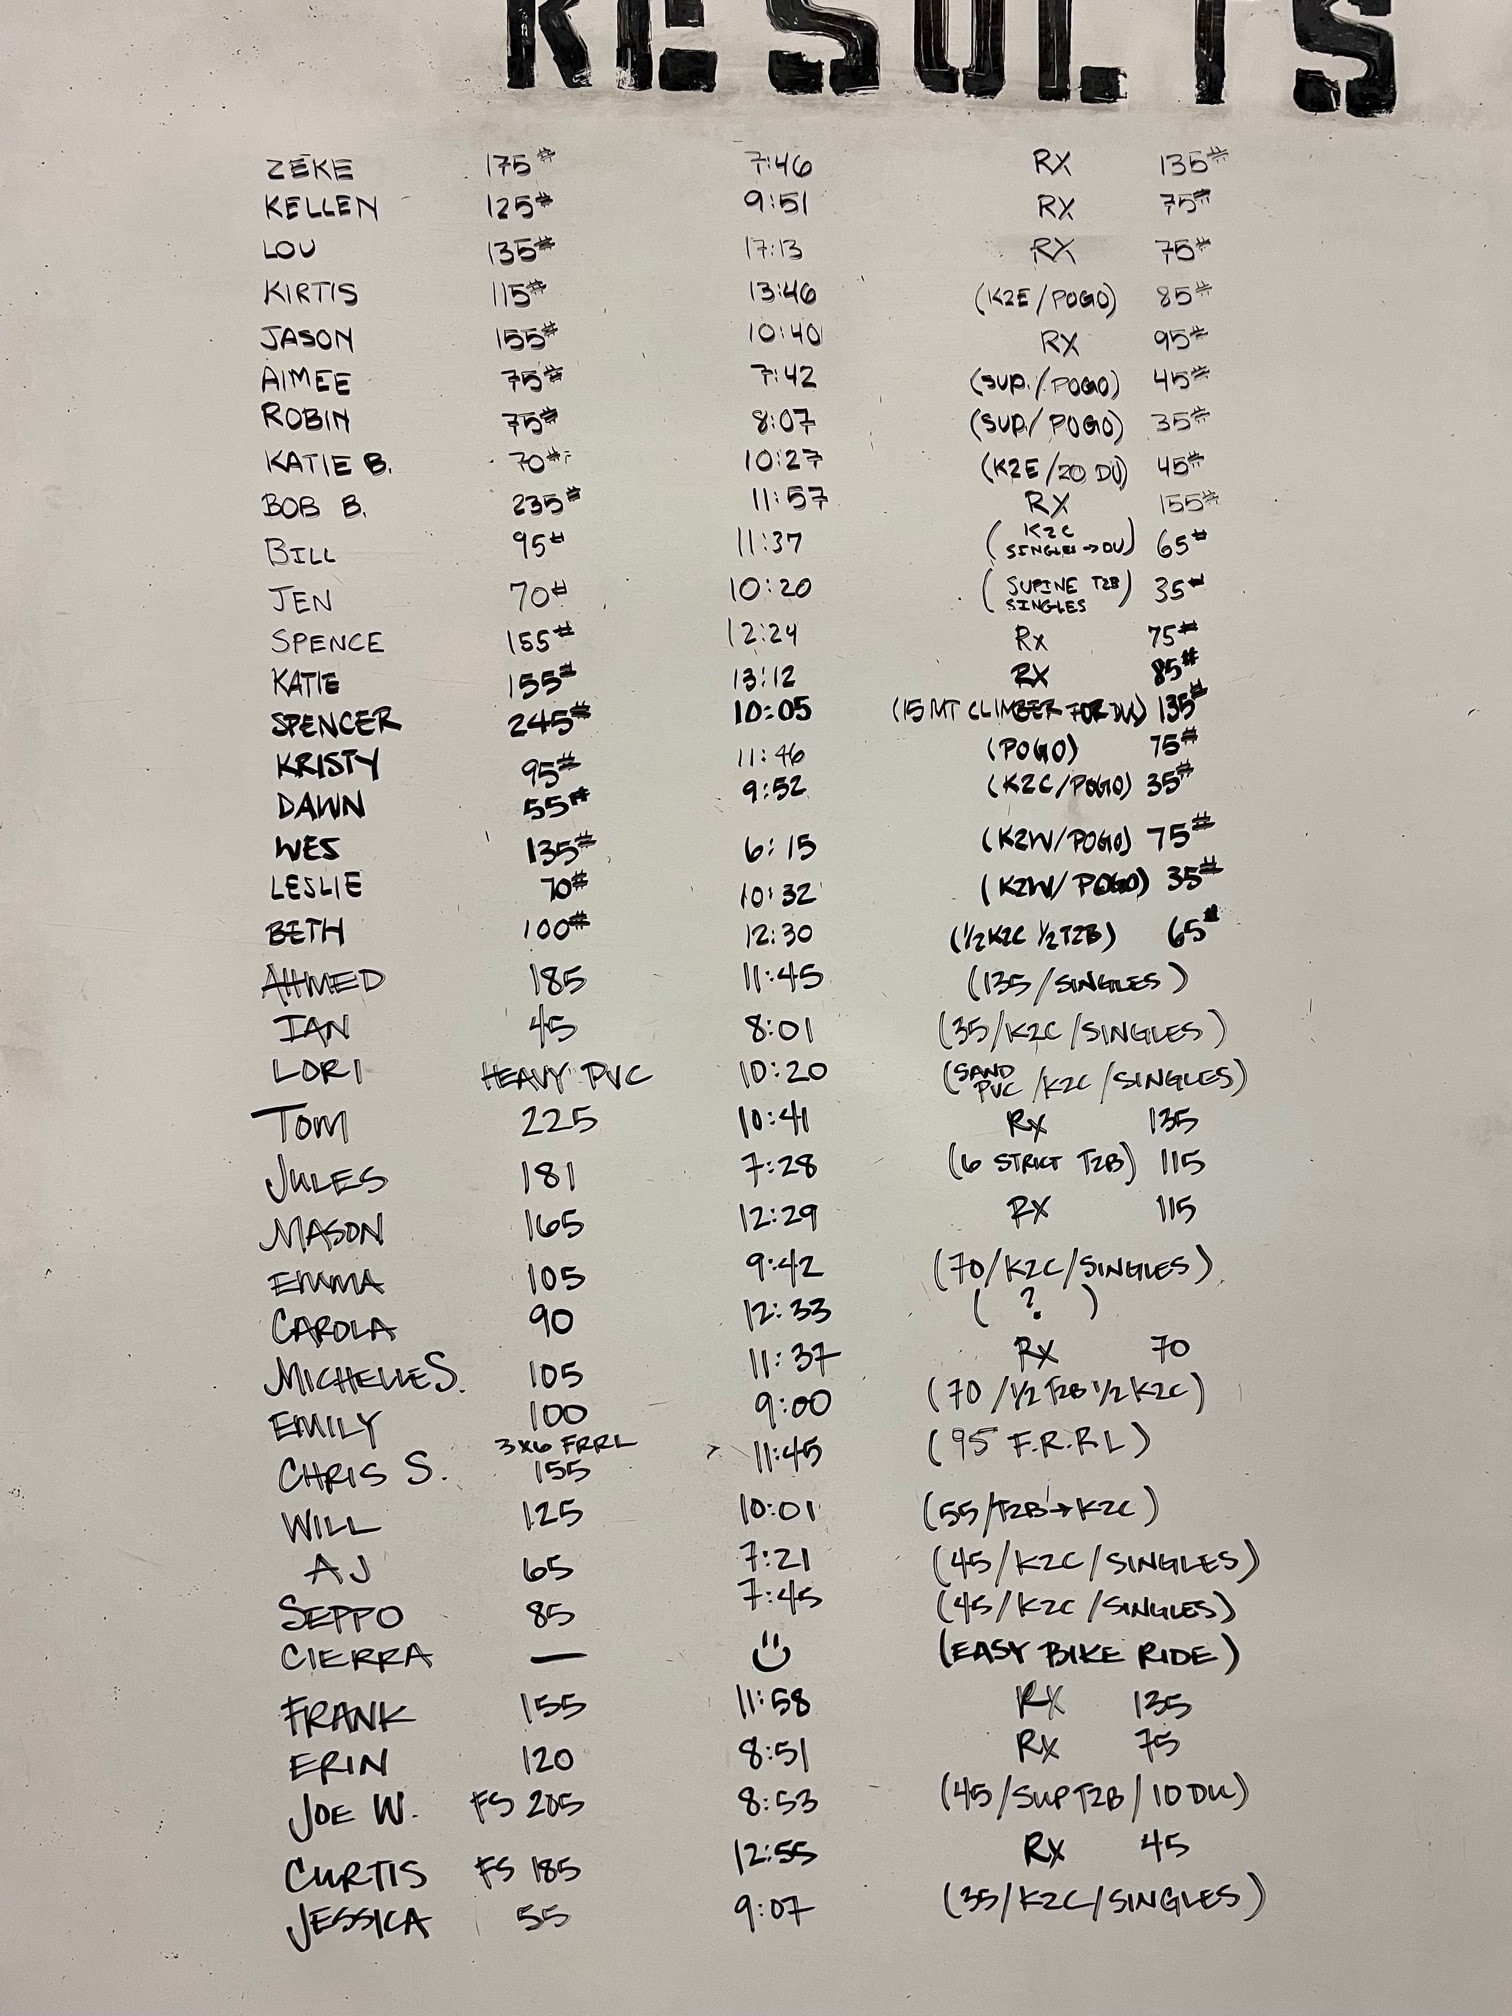 RESULTS
ZEKE 175# 7:46 RX 135#
KELLEN 125# 9:51 RX 75#
LOU 135# 17:13 RX 75#
KIRTIS 115# 13:46 (K2E/POGO) 85#
JASON 155# 10:40 RX 95#
AIMEE 75# 7:42 (SUP./POGO) 45#
ROBIN 75# 8:07 (SUP/POGO) 35#
KATIE B. 70# 10:27 (K2E/20 DU) 45#
BOB B. 235# 11:57 RX 155#
BILL 95# 11:37 (K2C SINGLES→DU) 65#
JEN 70# 10:20 (SUPINE T2B SINGLES) 35#
SPENCE 155# 12:24 Rx 75#
KATIE 155# 13:12 RX 85#
SPENCER 245# 10:05 (15 MT CLIMBER FOR DU) 135#
KRISTY 95# 11:46 (POGO) 75#
DAWN 55# 9:52 (K2C/POGO) 35#
WES 135# 6:15 (K2W/POGO) 75#
LESLIE 70# 10:32 (K2W/POGO) 35#
BETH 100# 12:30 (1/2 K2C 1/2 T2B) 65#
AHMED 185 11:45 (135/SINGLES)
IAN 45 8:01 (35/K2C/SINGLES)
LORI HEAVY PVC 10:20 (SAND PVC/K2C/SINGLES)
TOM 225 10:41 Rx 135
JULES 181 7:28 (6 STRICT T2B) 115
MASON 165 12:29 RX 115
EMMA 105 9:42 (70/K2C/SINGLES)
CAROLA 90 12:33 ( ? )
MICHELLE S. 105 11:37 Rx 70
EMILY 100 9:00 (70/1/2 T2B 1/2 K2C)
CHRIS S. 3x6 FRRL 155 11:45 (95 F.R.R.L)
WILL 125 10:01 (55/T2B→K2C)
AJ 65 7:21 (45/K2C/SINGLES)
SEPPO 85 7:45 (45/K2C/SINGLES)
CIERRA — (EASY BIKE RIDE)
FRANK 155 11:58 RX 135
ERIN 120 8:51 Rx 75
JOE W. FS 205 8:53 (45/SUP T2B/10 DU)
CURTIS FS 185 12:55 Rx 45
JESSICA 55 9:07 (35/K2C/SINGLES)